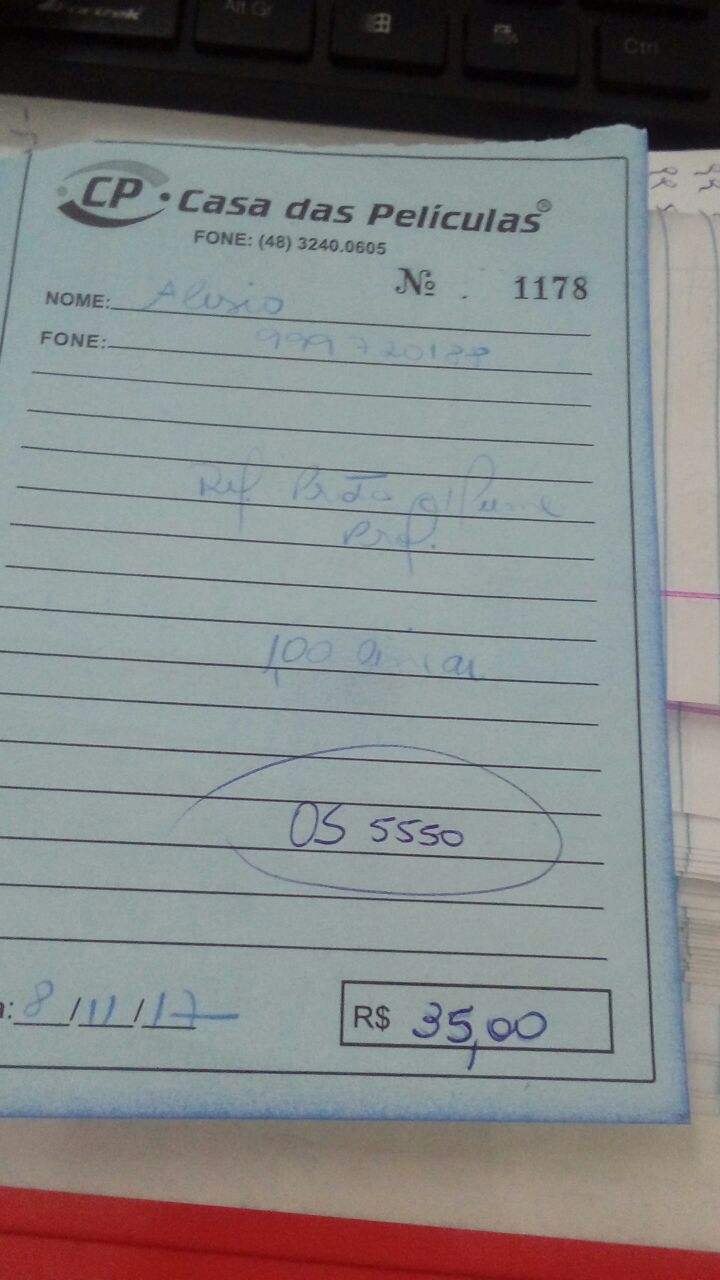 Alt Gr
Ctrl
CP Casa das Películas®
FONE: (48) 3240.0605
Nº 1178
NOME: Alusio
FONE: 999720188
Ref. Prata
Prf.
1,00
OS 5550
8/11/17
R$ 35,00